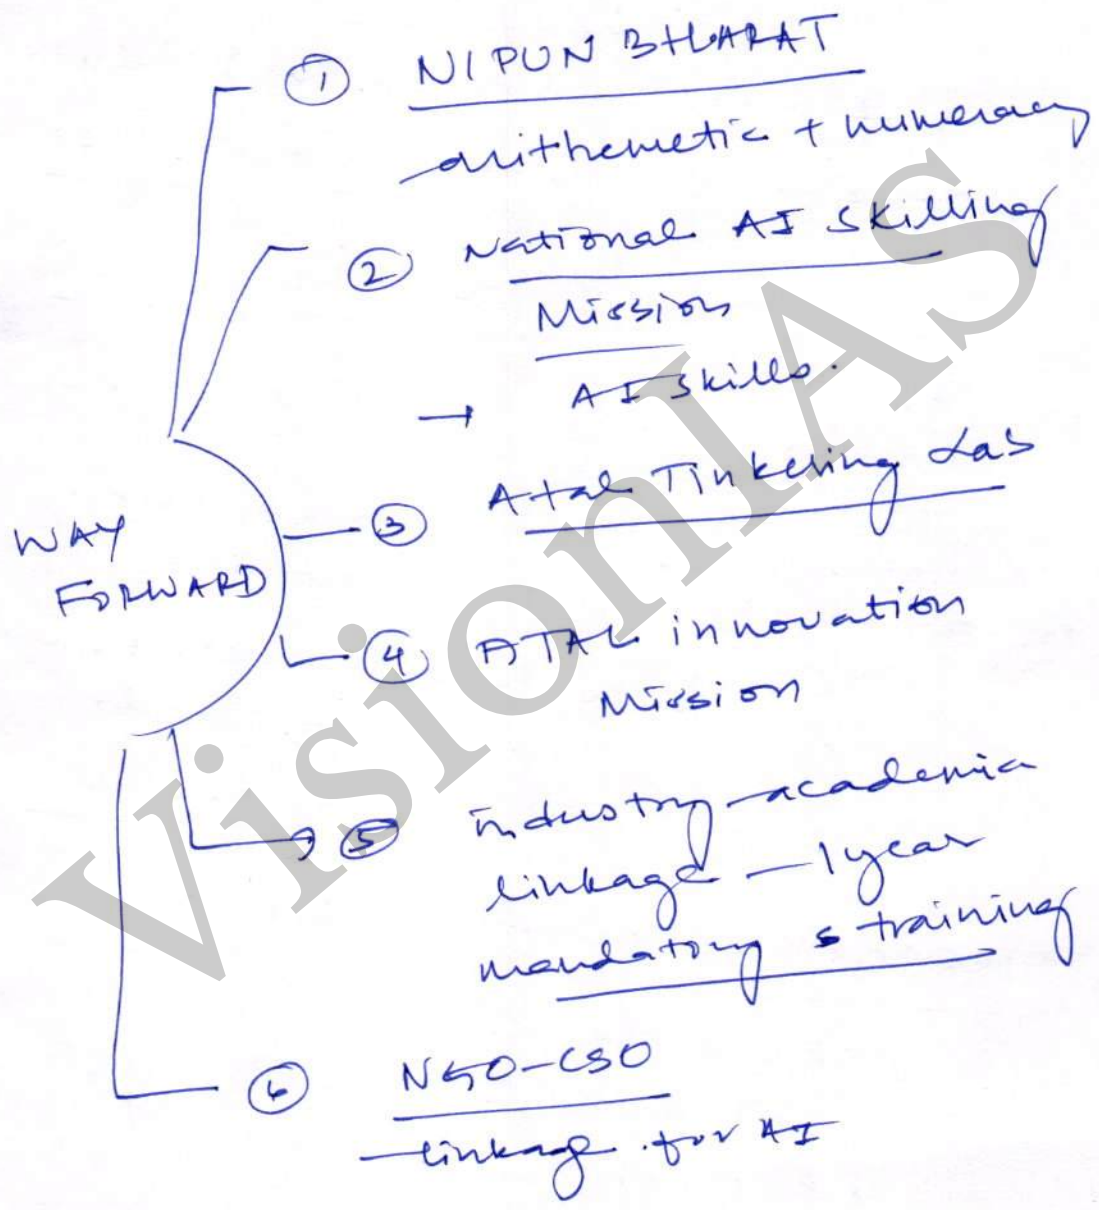 ① NIPUN BHARAT
arithemetic + numeracy
② National AI Skilling
Mission
→ AI skills.
③ Atal Tinkering Lab
WAY
FORWARD
④ ATAL innovation
Mission
⑤ industry-academia
linkage — 1 year
mandatory s training
⑥ NGO-CSO
linkage for AI
VisionIAS